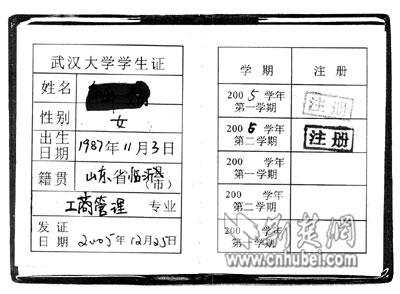 武汉大学学生证
姓名
性别 女
出生日期 1987年11月3日
籍贯 山东省临沂县(市)
工商管理 专业
发证日期 2005年12月25日
学期 注册
2005学年第一学期 注册
2005学年第二学期 注册
200 学年第一学期
200 学年第二学期
200
第一学期
荆楚网
www.cnhubei.com